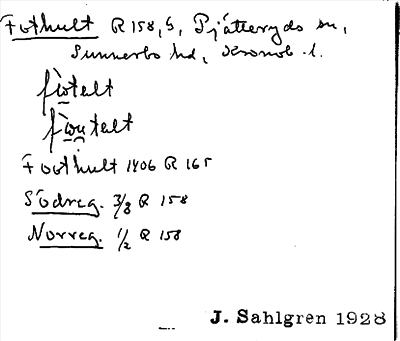 Fothult R 158, S, Pjätteryds sn,
Sunnerbo hd, Kronob. l.
fiωtelt
fiωutelt
Foothult 1406 R 165
Södreg. 3/8 R 158
Norreg. 1/2 R 158
J. Sahlgren 1928